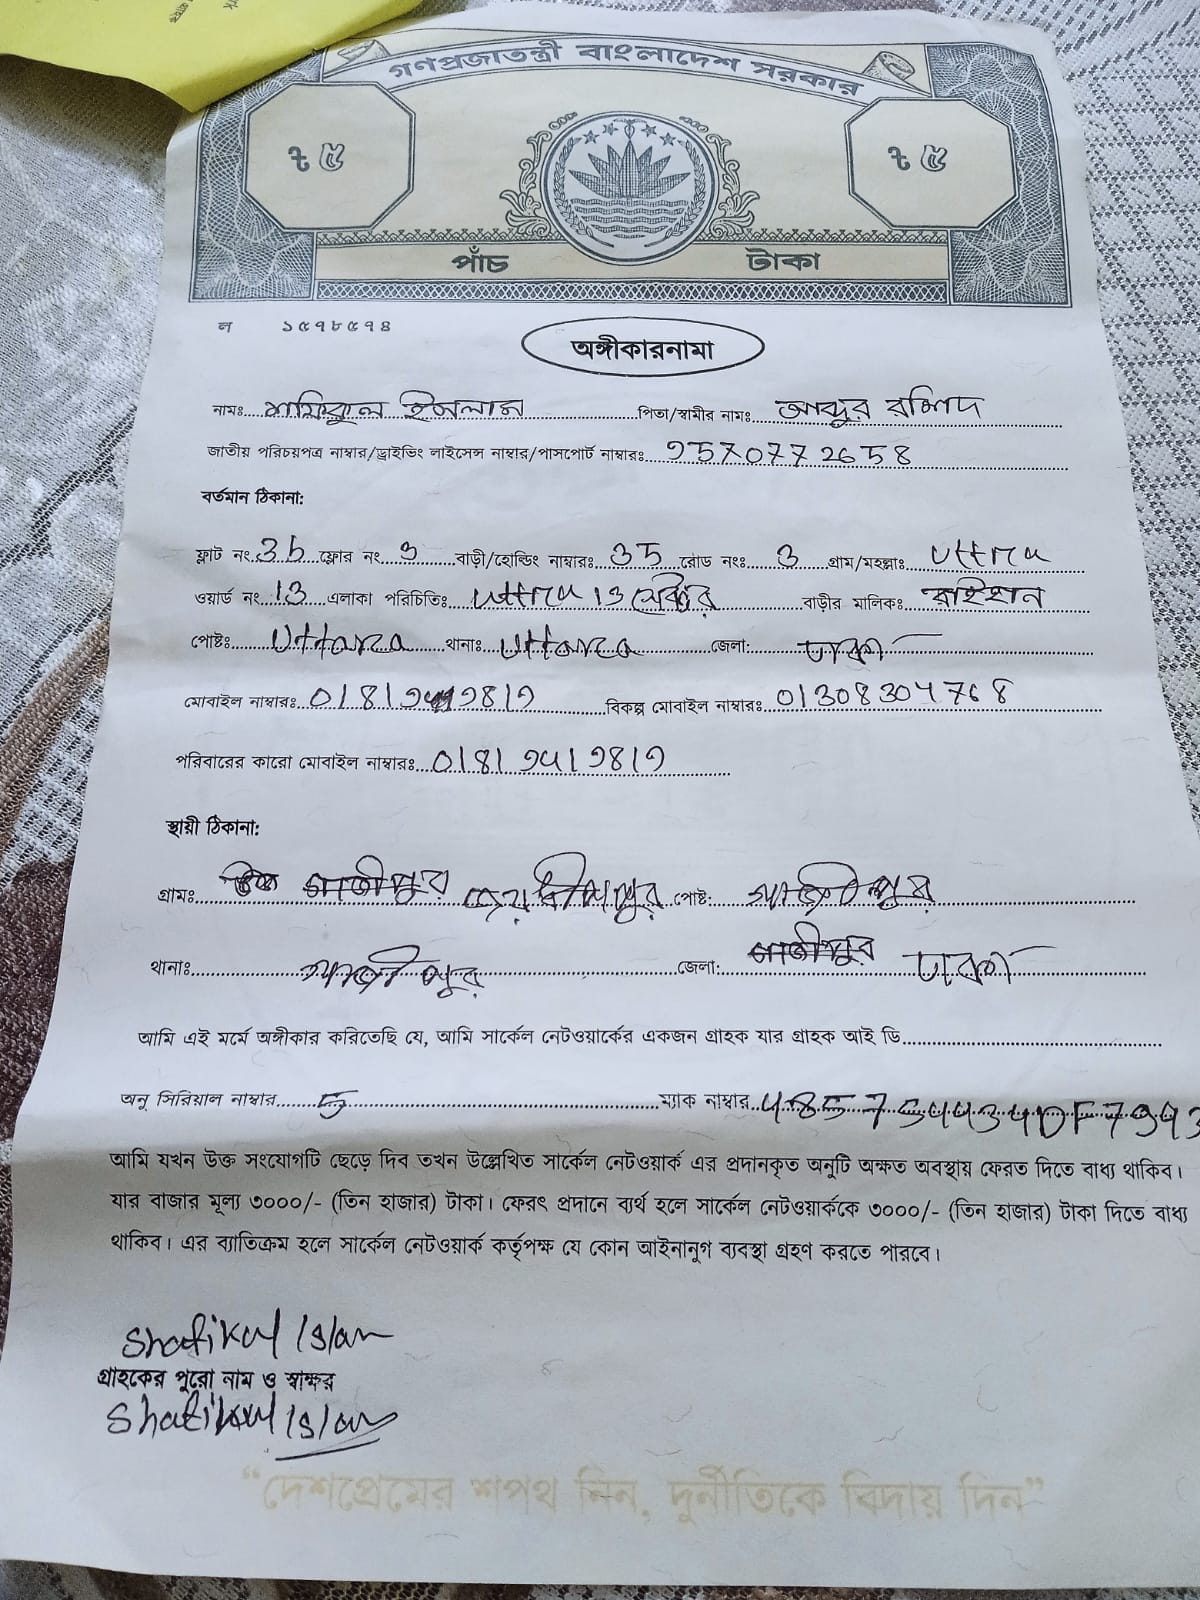 গণপ্রজাতন্ত্রী বাংলাদেশ সরকার
৳ ৫ ৳ ৫
পাঁচ টাকা
ল ১৫৭৮৫৭৪
অঙ্গীকারনামা
নামঃ শফিকুল ইসলাম পিতা/স্বামীর নামঃ আব্দুর রশিদ
জাতীয় পরিচয়পত্র নাম্বার/ড্রাইভিং লাইসেন্স নাম্বার/পাসপোর্ট নাম্বারঃ 9570772658
বর্তমান ঠিকানা:
ফ্লাট নং 3b ফ্লোর নং 3 বাড়ী/হোল্ডিং নাম্বারঃ 35 রোড নংঃ 3 গ্রাম/মহল্লাঃ Uttra
ওয়ার্ড নং 13 এলাকা পরিচিতিঃ Uttra 13 সেক্টর বাড়ীর মালিকঃ রাইহান
পোষ্টঃ Uttara থানাঃ Uttara জেলা: ঢাকা
মোবাইল নাম্বারঃ বিকল্প মোবাইল নাম্বারঃ 01308304768
পরিবারের কারো মোবাইল নাম্বারঃ 01819419819
স্থায়ী ঠিকানা:
গ্রামঃ পোষ্ট: গাজীপুর
থানাঃ গাজীপুর জেলা: গাজীপুর ঢাকা
আমি এই মর্মে অঙ্গীকার করিতেছি যে, আমি সার্কেল নেটওয়ার্কের একজন গ্রাহক যার গ্রাহক আই ডি
অনু সিরিয়াল নাম্বার 5 ম্যাক নাম্বার
আমি যখন উক্ত সংযোগটি ছেড়ে দিব তখন উল্লেখিত সার্কেল নেটওয়ার্ক এর প্রদানকৃত অনুটি অক্ষত অবস্থায় ফেরত দিতে বাধ্য থাকিব।
যার বাজার মূল্য ৩০০০/- (তিন হাজার) টাকা। ফেরৎ প্রদানে ব্যর্থ হলে সার্কেল নেটওয়ার্ককে ৩০০০/- (তিন হাজার) টাকা দিতে বাধ্য
থাকিব। এর ব্যাতিক্রম হলে সার্কেল নেটওয়ার্ক কর্তৃপক্ষ যে কোন আইনানুগ ব্যবস্থা গ্রহণ করতে পারবে।
Shafikul Islam
গ্রাহকের পুরো নাম ও স্বাক্ষর
Shafikul Islam
“দেশপ্রেমের শপথ নিন, দুর্নীতিকে বিদায় দিন”